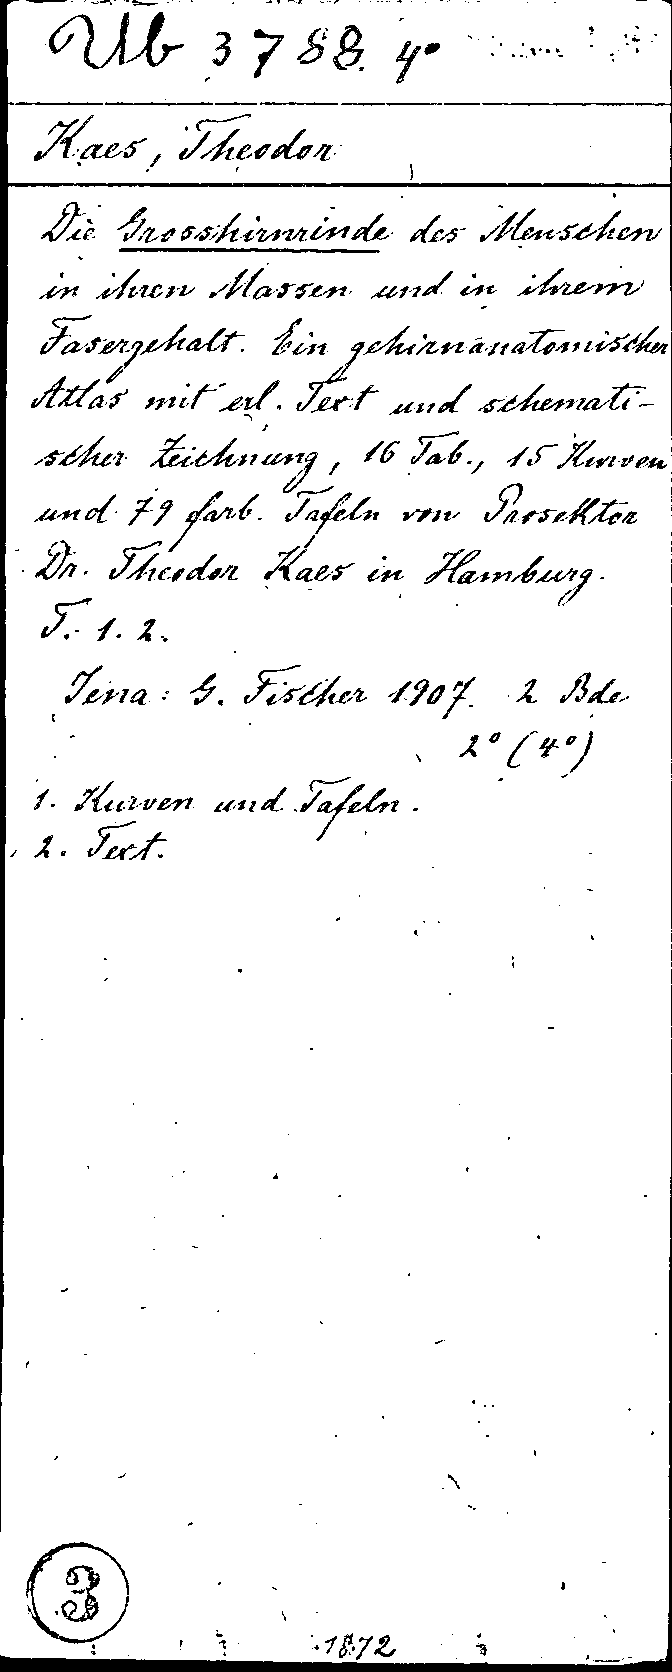 Ub 3788. 4°
Kaes, Theodor
Die Grosshirnrinde des Menschen
in ihren Massen und in ihrem
Fasergehalt. Ein gehirnanatomischer
Atlas mit erl. Text und schemati-
scher Zeichnung, 16 Tab., 15 Kurven
und 79 farb. Tafeln von Prosektor
Dr. Theodor Kaes in Hamburg.
T. 1. 2.
Jena: G. Fischer 1907. 2 Bde
2° (4°)
1. Kurven und Tafeln.
2. Text.
3
1872